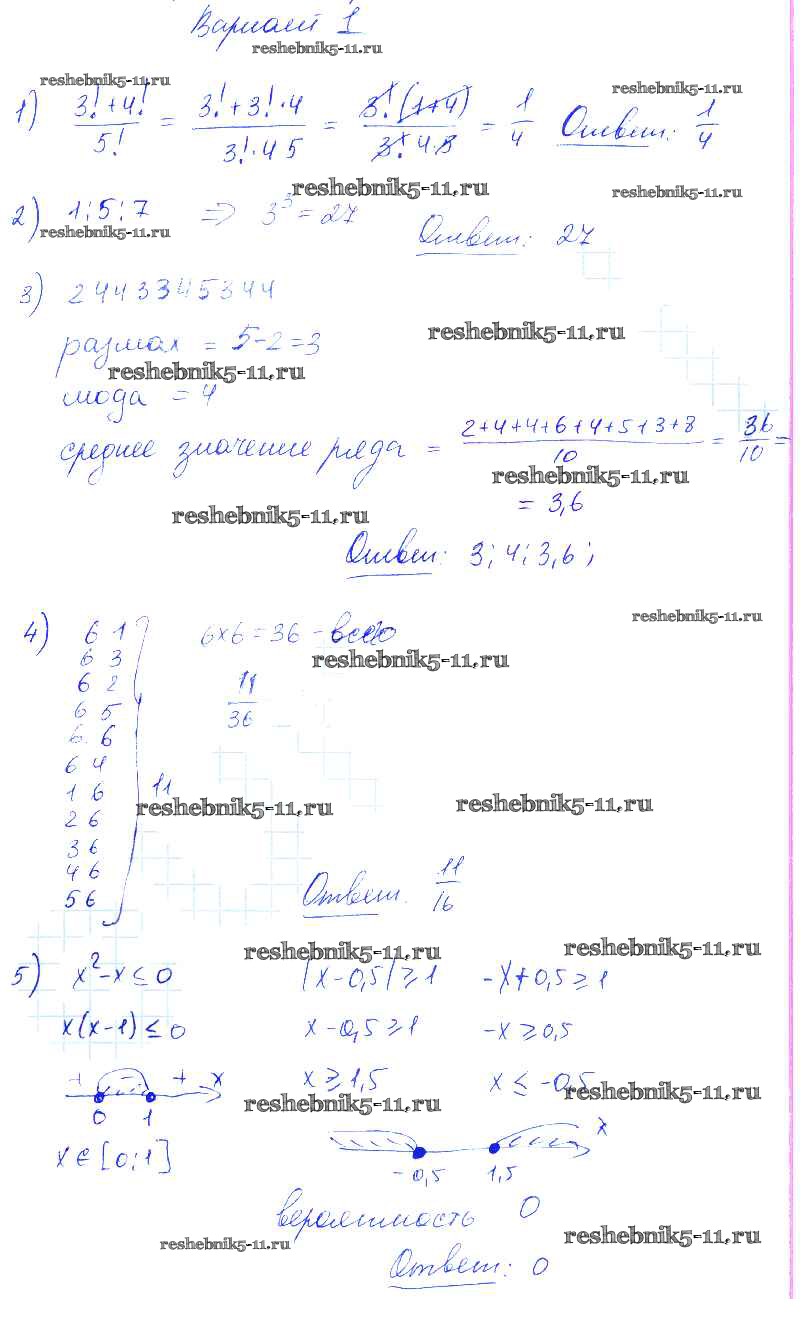 Вариант 1
reshebnik5-11.ru
reshebnik5-11.ru reshebnik5-11.ru
1) (3!+4!)/5! = (3!+3!·4)/(3!·4 5) = (3!(1+4))/(3! 4·5) = 1/4 Ответ: 1/4
reshebnik5-11.ru reshebnik5-11.ru
2) 1;5;7 => 3³=27 Ответ: 27
reshebnik5-11.ru
3) 2 4 4 3 3 4 5 3 4 4
reshebnik5-11.ru
размах = 5-2=3
reshebnik5-11.ru
мода = 4
среднее значение ряда = (2+4+4+6+4+5+3+8)/10 = 36/10 =
reshebnik5-11.ru
= 3,6
reshebnik5-11.ru
Ответ: 3; 4; 3,6;
reshebnik5-11.ru
4) 6 1 6×6=36 - всего
6 3
reshebnik5-11.ru
6 2 11/36
6 5
6 6
6 4
1 6 11
reshebnik5-11.ru reshebnik5-11.ru
2 6
3 6
4 6
5 6 Ответ. 11/16
reshebnik5-11.ru reshebnik5-11.ru
5) x²-x≤0 |x-0,5|≥1 -x+0,5≥1
x(x-1)≤0 x-0,5≥1 -x≥0,5
+ - + x x≥1,5 x≤-0,5
reshebnik5-11.ru reshebnik5-11.ru
0 1
x∈[0;1] x
-0,5 1,5
вероятность 0
reshebnik5-11.ru reshebnik5-11.ru
Ответ: 0